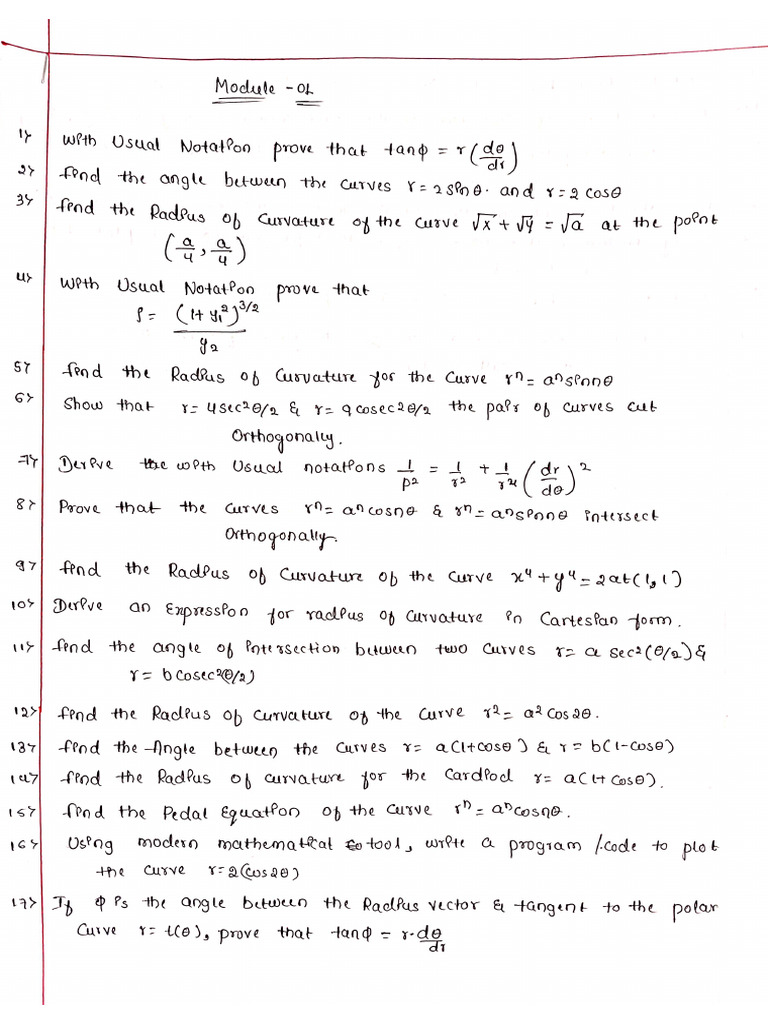 Module -01
1) With Usual Notation prove that tanϕ = r(dθ/dr)
2) find the angle between the curves r = 2sinθ. and r = 2 cosθ
3) find the Radius of Curvature of the curve √x + √y = √a at the point
(a/4, a/4)
4) With Usual Notation prove that
ρ = (1+ y₁²)^3/2 / y₂
5) find the Radius of Curvature for the Curve rⁿ = aⁿsinnθ
6) Show that r = 4sec²θ/2 & r = 9cosec²θ/2 the pair of curves cut
Orthogonally.
7) Derive the with Usual notations 1/p² = 1/r² + 1/r⁴ (dr/dθ)²
8) Prove that the Curves rⁿ = aⁿcosnθ & rⁿ = aⁿsinnθ intersect
Orthogonally.
9) find the Radius of Curvature of the Curve x⁴ + y⁴ = 2at(1, 1)
10) Derive an Expression for radius of Curvature in Cartesian form.
11) find the angle of intersection between two curves r = a sec²(θ/2) &
r = b cosec²(θ/2)
12) find the Radius of Curvature of the Curve r² = a² cos2θ.
13) find the Angle between the Curves r = a(1+cosθ) & r = b(1-cosθ)
14) find the Radius of curvature for the Cardiod r = a(1+ cosθ).
15) find the Pedal Equation of the Curve rⁿ = aⁿcosnθ.
16) Using modern mathematical tool, write a program /.code to plot
the curve r = 2(cos2θ)
17) If ϕ is the angle between the Radius vector & tangent to the polar
Curve r = t(θ), prove that tanϕ = r.dθ/dr